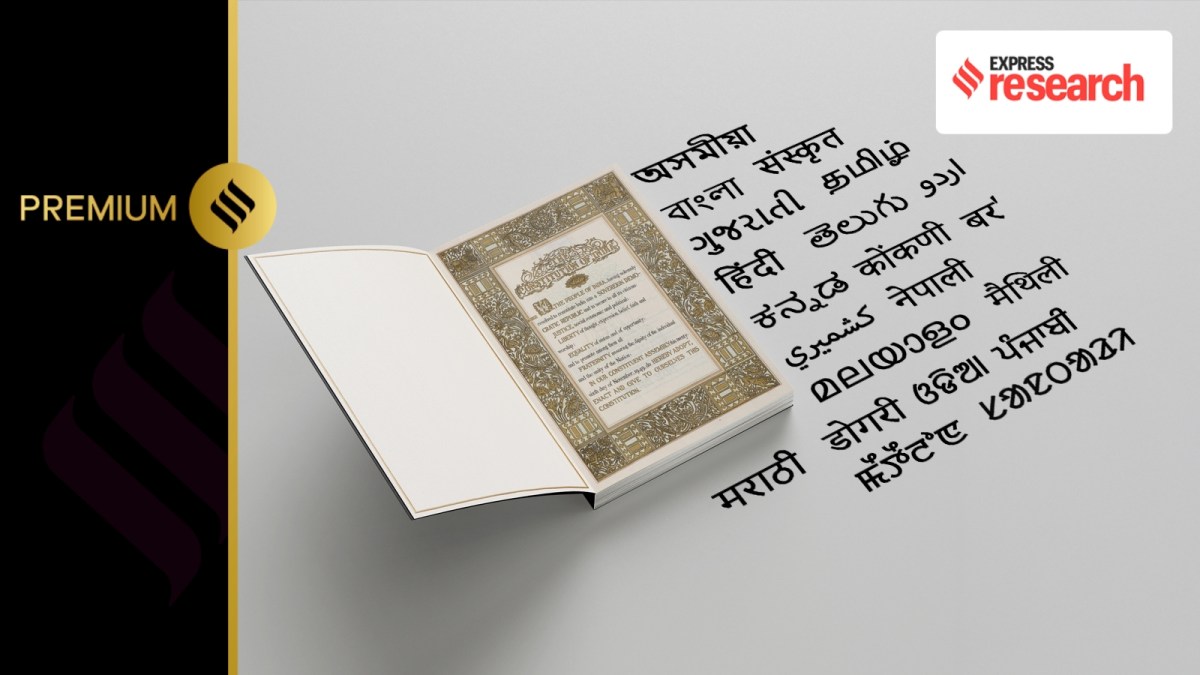 PREMIUM
EXPRESS
research
WE, THE PEOPLE OF INDIA, having solemnly
resolved to constitute India into a SOVEREIGN DEMO-
CRATIC REPUBLIC and to secure to all its citizens:
JUSTICE, social, economic and political;
LIBERTY of thought, expression, belief, faith and
worship;
EQUALITY of status and of opportunity;
and to promote among them all
FRATERNITY assuring the dignity of the individual
and the unity of the Nation;
IN OUR CONSTITUENT ASSEMBLY this twenty-
sixth day of November, 1949, do HEREBY ADOPT,
ENACT AND GIVE TO OURSELVES THIS
CONSTITUTION.
অসমীয়া
বাংলা संस्कृत
ગુજરાતી தமிழ்
हिंदी తెలుగు اردو
ಕನ್ನಡ कोंकणी बर'
كشميري नेपाली
മലയാളം मैथिली
डोगरी ଓଡିଆ ਪੰਜਾਬੀ
मराठी